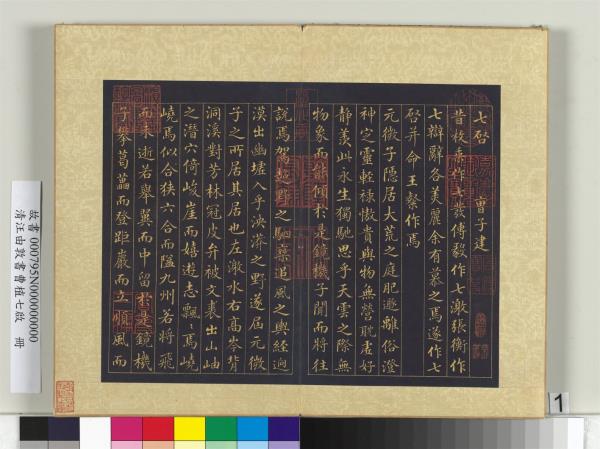 七啓 曹子建
昔枚乘作七發傅毅作七激張衡作
七辯辭各美麗余有慕之焉遂作七
啓并命王粲作焉
元微子隱居大荒之庭肥遯離俗澄
神定靈輕祿傲貴與物無營耽虛好
靜羨此永生獨馳思乎天雲之際無
物象而能傾於是鏡機子聞而將往
說焉駕超野之駟乘追風之輿經迥
漠出幽墟入乎泱漭之野遂屆元微
子之所居其居也左激水右高岑背
洞溪對芳林冠皮弁被文裘出山岫
之潛穴倚峻崖而嬉遊志飄〻焉嶢
嶢焉似合狹六合而隘九州若將飛
而未逝若舉翼而中留於是鏡機
子攀葛藟而登距巖而立順風而
故書 000795N000000000
清汪由敦書曹植七啟 冊
1